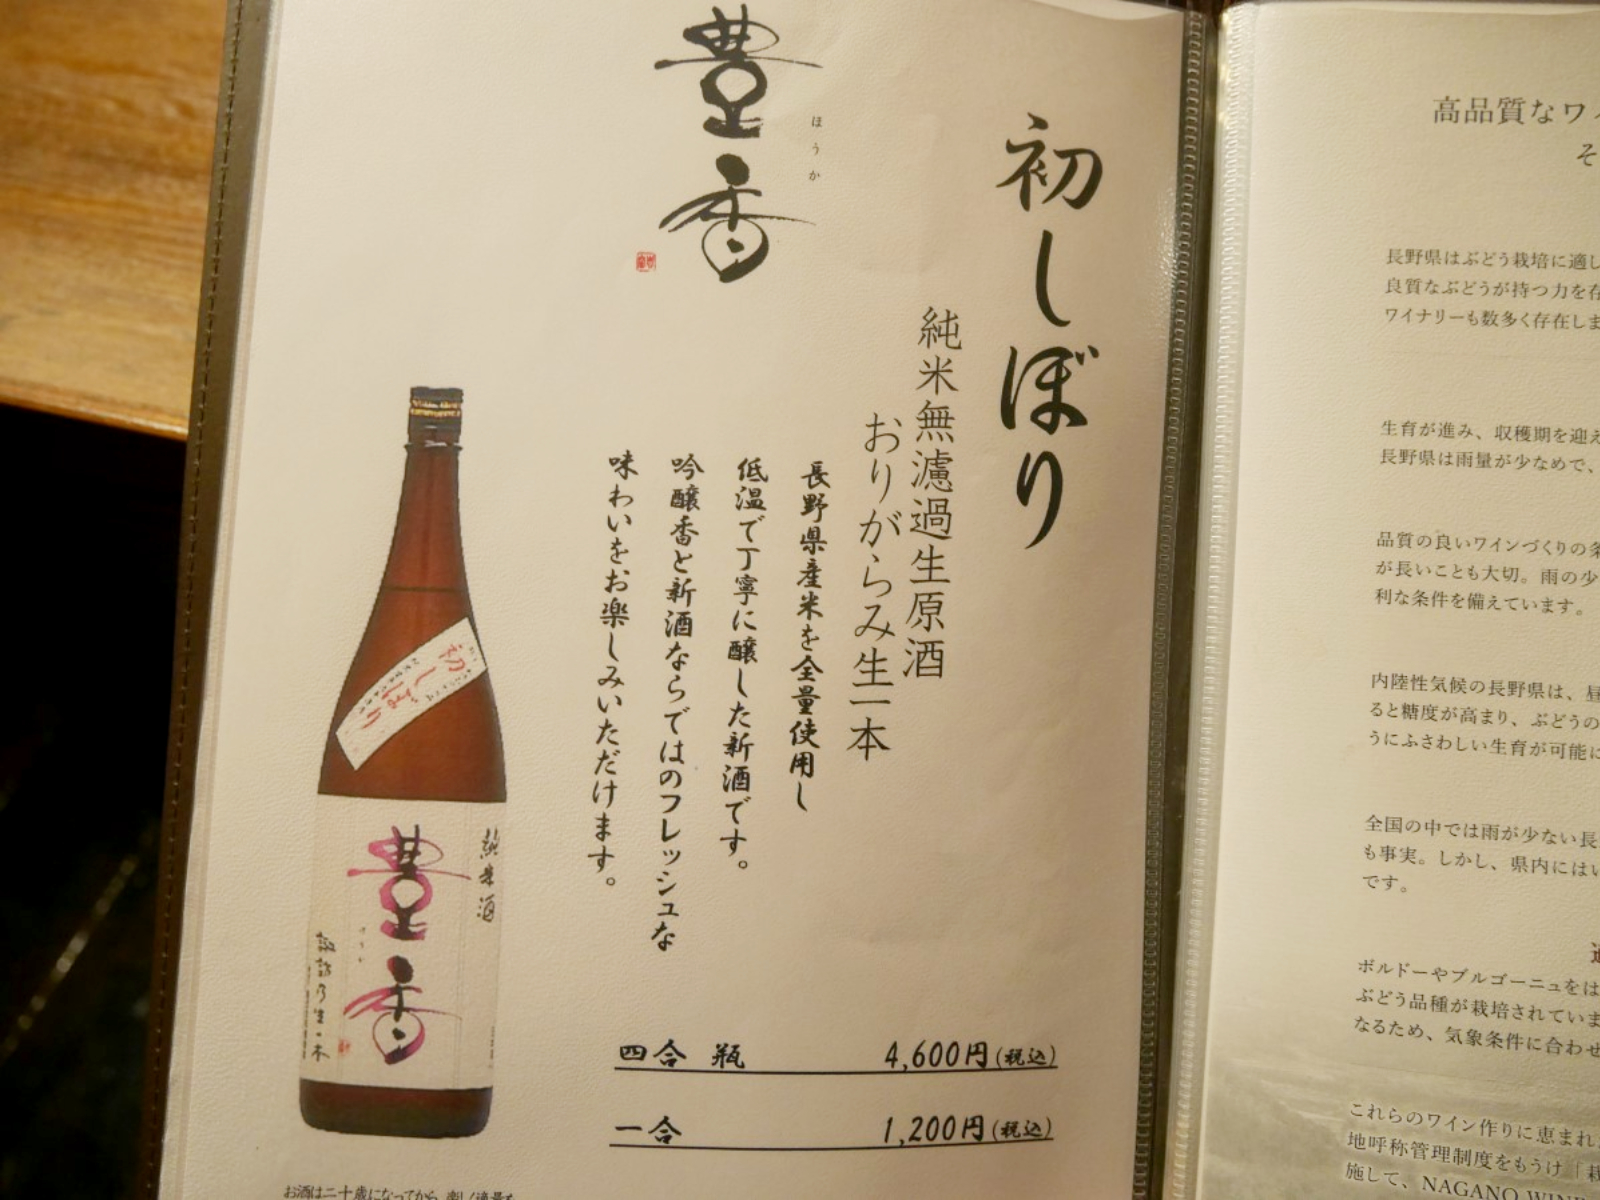 豊香
ほうか
初しぼり
純米無濾過生原酒
おりがらみ生一本
長野県産米を全量使用し
低温で丁寧に醸した新酒です。
吟醸香と新酒ならではのフレッシュな
味わいをお楽しみいただけます。
初しぼり
純米酒
豊香
諏訪乃生一本
四合瓶 4,600円(税込)
一合 1,200円(税込)
お酒は二十歳になってから
高品質なワ
そ
長野県はぶどう栽培に適し
良質なぶどうが持つ力を
ワイナリーも数多く存在しま
生育が進み、収穫期を迎え
長野県は雨量が少なめで、
品質の良いワインづくりの条
が長いことも大切。雨の少
利な条件を備えています。
内陸性気候の長野県は、昼
ると糖度が高まり、ぶどうの
うにふさわしい生育が可能に
全国の中では雨が少ない長
も事実。しかし、県内にはい
です。
ボルドーやブルゴーニュをは
ぶどう品種が栽培されていま
なるため、気象条件に合わせ
これらのワイン作りに恵まれ
地呼称管理制度をもうけ「
施して、NAGANO WINE